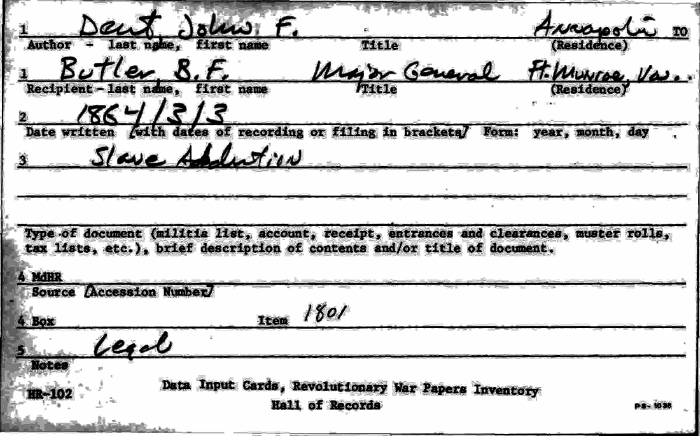 1 Dent, John F. Annapolis TO
Author - last name, first name Title (Residence)
1 Butler, B.F. Major General Ft. Munroe, Va..
Recipient-last name, first name Title (Residence)
2 1864/3/3
Date written [with dates of recording or filing in brackets] Form: year, month, day
3 Slave Abduction
Type of document (militia list, account, receipt, entrances and clearances, muster rolls,
tax lists, etc.), brief description of contents and/or title of document.
4 MdHR
Source [Accession Number]
4 Box Item 1801
5 Legal
Notes
HR-102 Data Input Cards, Revolutionary War Papers Inventory
Hall of Records PS-1036